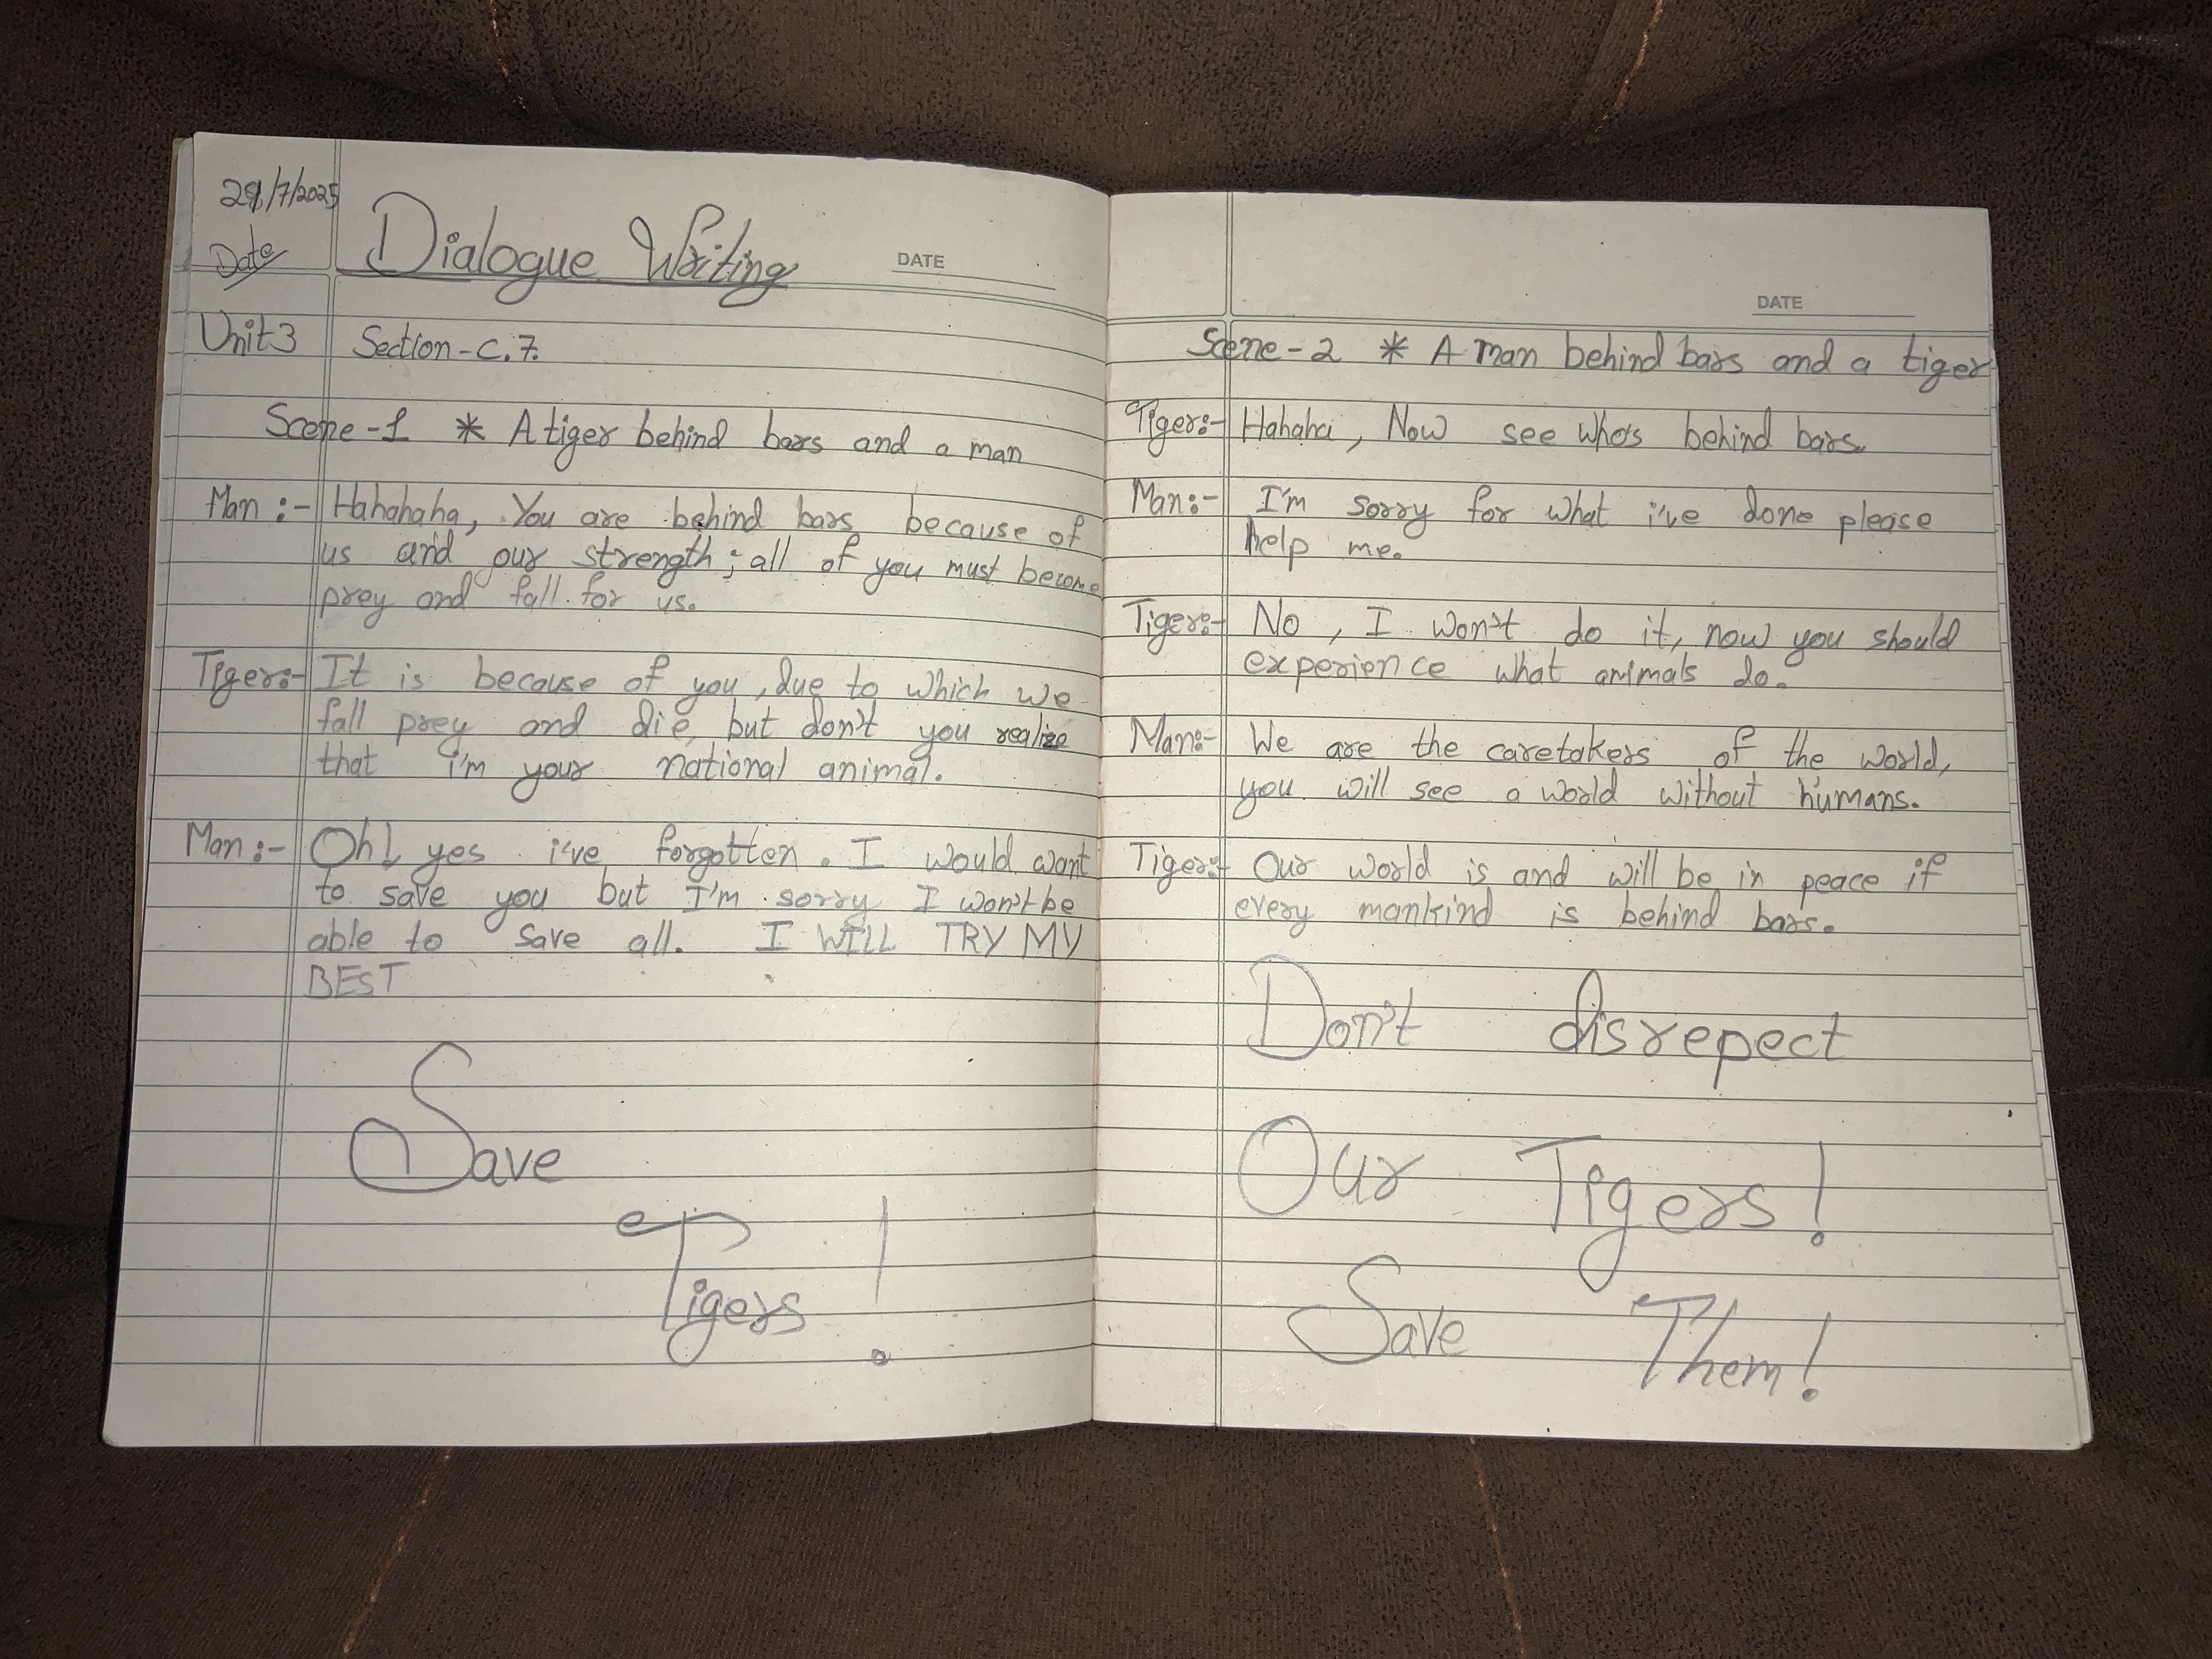 29/7/2025
Date
Dialogue Writing
DATE
Unit 3 Section-C.7.
Scene-1 * A tiger behind bars and a man
Man :- Hahahaha, You are behind bars because of
us and our strength; all of you must become
prey and fall for us.
Tiger:- It is because of you, due to which we
fall prey and die, but don't you realize
that i'm your national animal.
Man :- Oh! yes i've forgotten. I would want
to save you but I'm sorry I won't be
able to save all. I WILL TRY MY
BEST
Save
Tigers !
DATE
Scene-2 * A man behind bars and a tiger
Tiger:- Hahaha, Now see who's behind bars.
Man:- I'm sorry for what i've done please
help me.
Tiger:- No, I won't do it, now you should
experience what animals do.
Man:- We are the caretakers of the world,
you will see a world without humans.
Tiger:- Our world is and will be in peace if
every mankind is behind bars.
Don't disrepect
Our Tigers!
Save Them!